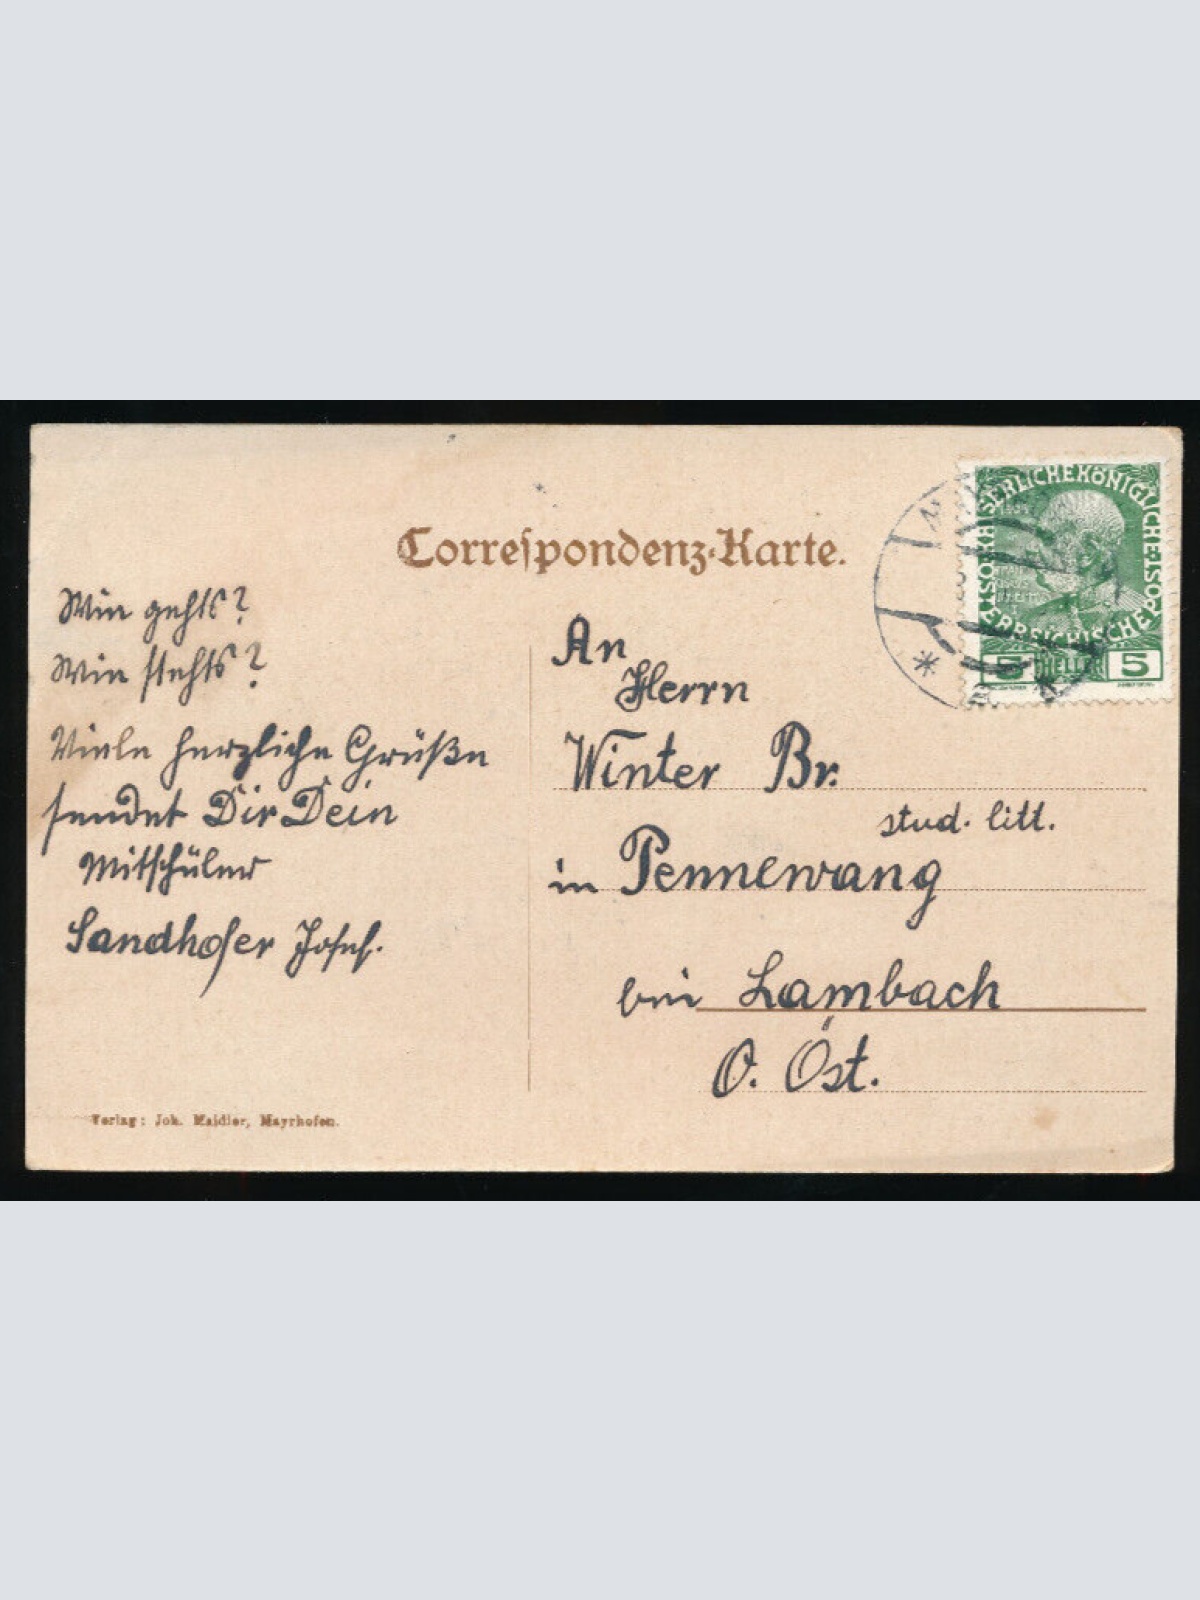 Correspondenz-Karte.
Wie gehts?
Wie stehts?
Viele herzliche Grüße
sendet Dir Dein
Mitschüler
Sandhofer Josef.
An
Herrn
Winter Br.
stud. litt.
in Pennewang
bei Lambach
O. Öst.
Verlag: Joh. Maidler, Mayrhofen.
KAISERLICHEKÖNIGLICHE
ÖSTERREICHISCHEPOST
5 HELLER 5